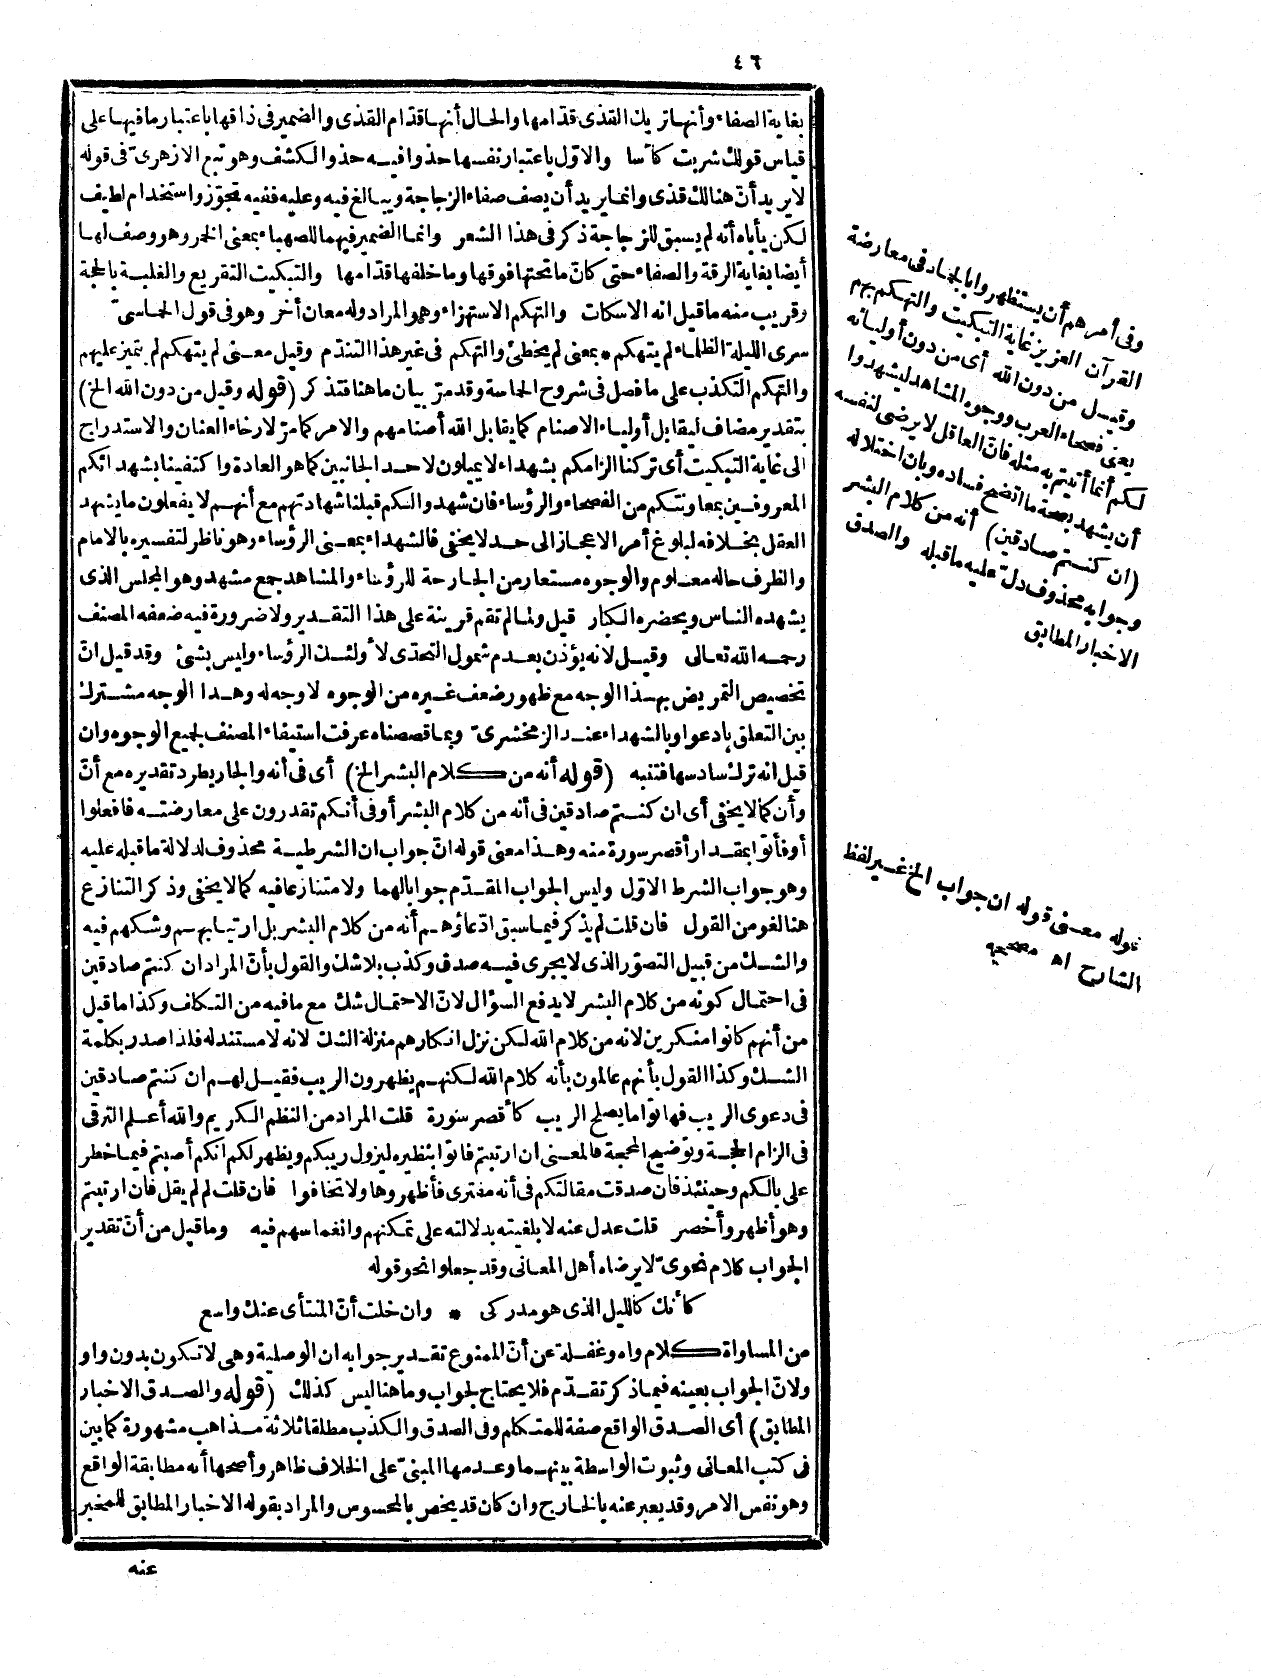 ٤٦
بغاية الصفاء وأنها تريك القذى قدّامها والحال أنها قدّام القذى والضمير فى ذاقها باعتبار ما فيها على
قياس قولك شربت كأسا والاوّل باعتبار نفسها حذوا فيه حذو الكشف وهو تبع الازهرىّ فى قوله
لا يريد أنّ هنالك قذى وانما يريد أن يصف صفاء الزجاجة ويبالغ فيه وعليه ففيه تجوّز واستخدام لطيف
لكن يأباه أنه لم يسبق للزجاجة ذكر فى هذا الشعر وانما الضمير فيهما للصهباء بمعنى الخمر وهو وصف لها
أيضا بغاية الرقة والصفاء حتى كانّ ما تحتها فوقها وما خلفها قدّامها والتبكيت التقريع والغلبة بالحجة
وقريب منه ما قيل انه الاسكات والتهكم الاستهزاء وهو المراد وله معان أخر وهو فى قول الحماسىّ
سرى الليلة الظلماء لم يتهكم * بمعنى لم يخطئ والتهكم فى غير هذا التندّم وقيل معنى لم يتهكم لم يتميز عليهم
والتهكم التكذب على ما فصل فى شروح الحماسة وقد مرّ بيان ما هنا فتذكر (قوله وقيل من دون الله الخ)
بتقدير مضاف ليقابل أولياء الاصنام كما يقابل الله أصنامهم والامر كما مرّ لارخاء العنان والاستدراج
الى غاية التبكيت أى تركنا الزامكم بشهداء لا يميلون لاحد الجانبين كما هو العادة واكتفينا بشهدائكم
المعروفين بمعاونتكم من الفصحاء والرؤساء فان شهدوا لكم قبلنا شهادتهم مع أنهم لا يفعلون ما يشهد
العقل بخلافه لبلوغ أمر الاعجاز الى حد لا يخفى فالشهداء بمعنى الرؤساء وهو ناظر لتفسيره بالامام
والظرف حاله معلوم والوجوه مستعار من الجارحة للرؤساء والمشاهد جمع مشهد وهو المجلس الذى
يشهده الناس ويحضره الكبار قيل ولما لم تقم قرينة على هذا التقدير ولا ضرورة فيه ضعفه المصنف
رحمه الله تعالى وقيل لانه يؤذن بعدم شمول التحدّى لأولئك الرؤساء وليس بشئ وقد قيل انّ
تخصيص التمريض بهذا الوجه مع ظهور ضعف غيره من الوجوه لا وجه له وهذا الوجه مشترك
بين التعلق بادعوا وبالشهداء عند الزمخشرىّ وبما قصصناه عرفت استيفاء المصنف لجميع الوجوه وان
قيل انه ترك سادسها فتنبه (قوله أنه من كلام البشر الخ) أى فى أنه والجار يطرد تقديره مع أنّ
وأن كما لا يخفى أى ان كنتم صادقين فى أنه من كلام البشر أو فى أنكم تقدرون على معارضته فافعلوا
أو فأتوا بمقدار أقصر سورة منه وهذا معنى قوله انّ جواب ان الشرطية محذوف لدلالة ما قبله عليه
وهو جواب الشرط الاوّل وليس الجواب المقدّم جوابا لهما ولا متنازعا فيه كما لا يخفى وذكر التنازع
هنا لغو من القول فان قلت لم يذكر فيما سبق ادّعاؤهم أنه من كلام البشر بل ارتيابهم وشكهم فيه
والشك من قبيل التصوّر الذى لا يجرى فيه صدق وكذب بلا شك والقول بأنّ المراد ان كنتم صادقين
فى احتمال كونه من كلام البشر لا يدفع السؤال لانّ الاحتمال شك مع ما فيه من التكاف وكذا ما قيل
من أنهم كانوا منكرين لانه من كلام الله لكن نزل انكارهم منزلة الشك لانه لا مستند له فلذا صدر بكلمة
الشك وكذا القول بأنهم عالمون بأنه كلام الله لكنهم يظهرون الريب فقيل لهم ان كنتم صادقين
فى دعوى الريب فهاتوا ما يصلح الريب كأقصر سورة قلت المراد من النظم الكريم والله أعلم الترقى
فى الزام الحجة وتوضيح المحجة فالمعنى ان ارتبتم فأتوا بنظيره ليزول ريبكم ويظهر لكم انكم أصبتم فيما خطر
على بالكم وحينئذ فان صدقت مقالتكم فى أنه مفترى فأظهروها ولا تخافوا فان قلت لم لم يقل فان ارتبتم
وهو أظهر وأخصر قلت عدل عنه لابلغيته بدلالته على تمكنهم وانغماسهم فيه وما قيل من أنّ تقدير
الجواب كلام نحوىّ لا يرضاه أهل المعانى وقد جعلوا نحو قوله
كأنك كالليل الذى هو مدركى * وان خلت أنّ المنتأى عنك واسع
من المساواة كلام واه وغفلة عن أنّ الممنوع تقدير جوابه ان الوصلية وهى لا تكون بدون واو
ولانّ الجواب بعينه فيما ذكر تقدّم فلا يحتاج لجواب وما هنا ليس كذلك (قوله والصدق الاخبار
المطابق) أى الصدق الواقع صفة للمتكلم وفى الصدق والكذب مطلقا ثلاثة مذاهب مشهورة كما بين
فى كتب المعانى وثبوت الواسطة بينهما وعدمها المبنىّ على الخلاف ظاهر وأصحها أنه مطابقة الواقع
وهو نفس الامر وقد يعبر عنه بالخارج وان كان قد يخص بالمحسوس والمراد بقوله الاخبار المطابق للمخبر
عنه
وفى أمرهم أن يستظهروا بالجماد فى معارضة
القرآن العزيز غاية التبكيت والتهكم بهم
وقيل من دون الله أى من دون أوليائه
يعنى فصحاء العرب ووجوه المشاهد ليشهدوا
لكم أنّ ما أتيتم به مثله فانّ العاقل لا يرضى لنفسه
أن يشهد بصحة ما اتضح فساده وبان اختلاله
(ان كنتم صادقين) أنه من كلام البشر
وجوابه محذوف دلّ عليه ما قبله والصدق
الاخبار المطابق
قوله معنى قوله ان جواب الخ غير لفظ
الشارح اه مصححه